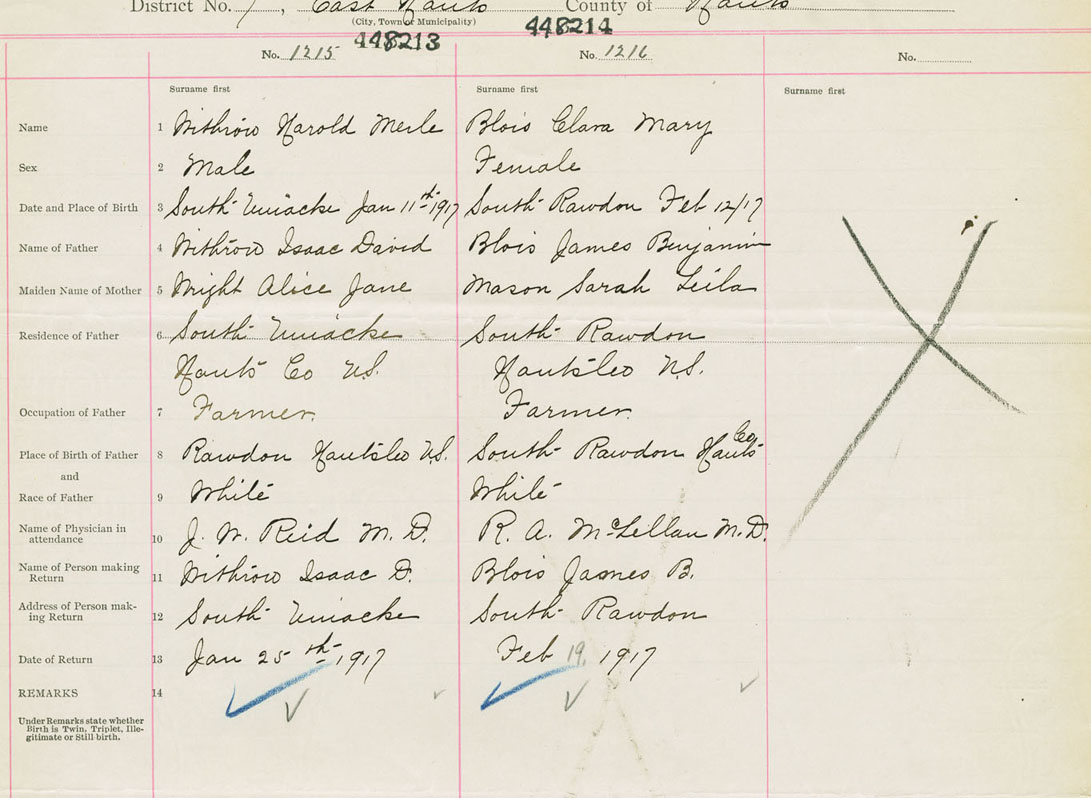 District No. 7, East Hants County of Hants
(City, Town or Municipality)
448213 448214
No. 1215 No. 1216 No.
Surname first Surname first Surname first
Name 1 Withrow Harold Merle Blois Clara Mary
Sex 2 Male Female
Date and Place of Birth 3 South Uniacke Jan 11th 1917 South Rawdon Feb 12/17
Name of Father 4 Withrow Isaac David Blois James Benjamin
Maiden Name of Mother 5 Wright Alice Jane Mason Sarah Leila
Residence of Father 6 South Uniacke South Rawdon
Hants Co N.S. Hants Co N.S.
Occupation of Father 7 Farmer. Farmer.
Place of Birth of Father 8 Rawdon Hants Co N.S. South Rawdon Hants Co
and
Race of Father 9 White White
Name of Physician in
attendance 10 J. W. Reid M. D. R. A. McLellan M.D.
Name of Person making
Return 11 Withrow Isaac D. Blois James B.
Address of Person mak-
ing Return 12 South Uniacke South Rawdon
Date of Return 13 Jan 25th 1917 Feb 19, 1917
REMARKS 14
Under Remarks state whether
Birth is Twin, Triplet, Ille-
gitimate or Still birth.